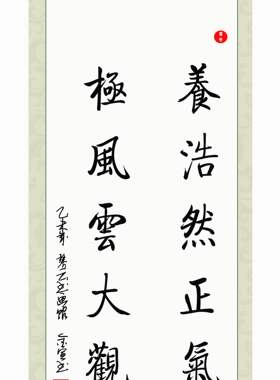 養浩然正氣
極風雲大觀
乙未年